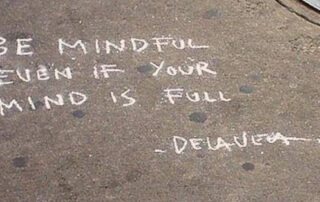 BE MINDFUL
EVEN IF YOUR
MIND IS FULL
- DELAVEGA -